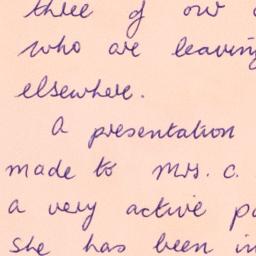 three of our
who are leaving
elsewhere.
A presentation
made to Mrs. C.
a very active
She has been